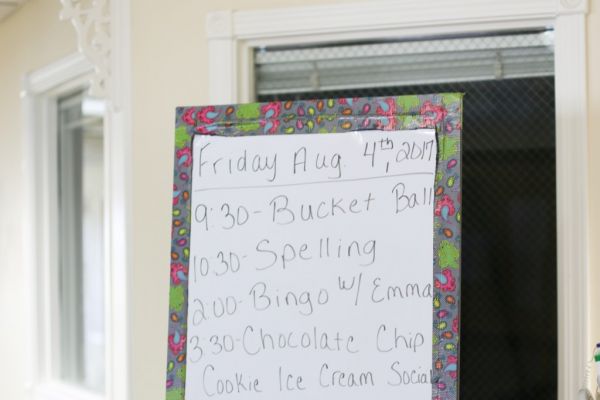 Friday Aug. 4th, 2017
9:30-Bucket Ball
10:30-Spelling
2:00-Bingo w/ Emma
3:30-Chocolate Chip
Cookie Ice Cream Social